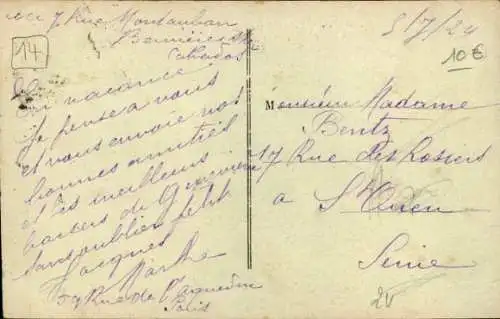 7 Rue Montauban
Bernières s/Mer
Calvados
5/7/24
14
10 €
En vacance
Je pense a vous
et vous envoie nos
bonnes amitiés
et les meilleurs
baisers de Genevieve
sans oublier petit
Jacques
Marthe
59 Rue de
Paris
Monsieur Madame
Bentz
17 Rue des Rosiers
a St Ouen
Seine